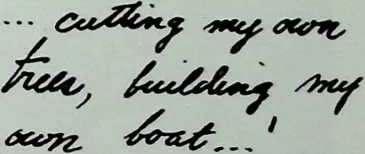 ... cutting my own
trees, building my
own boat...'